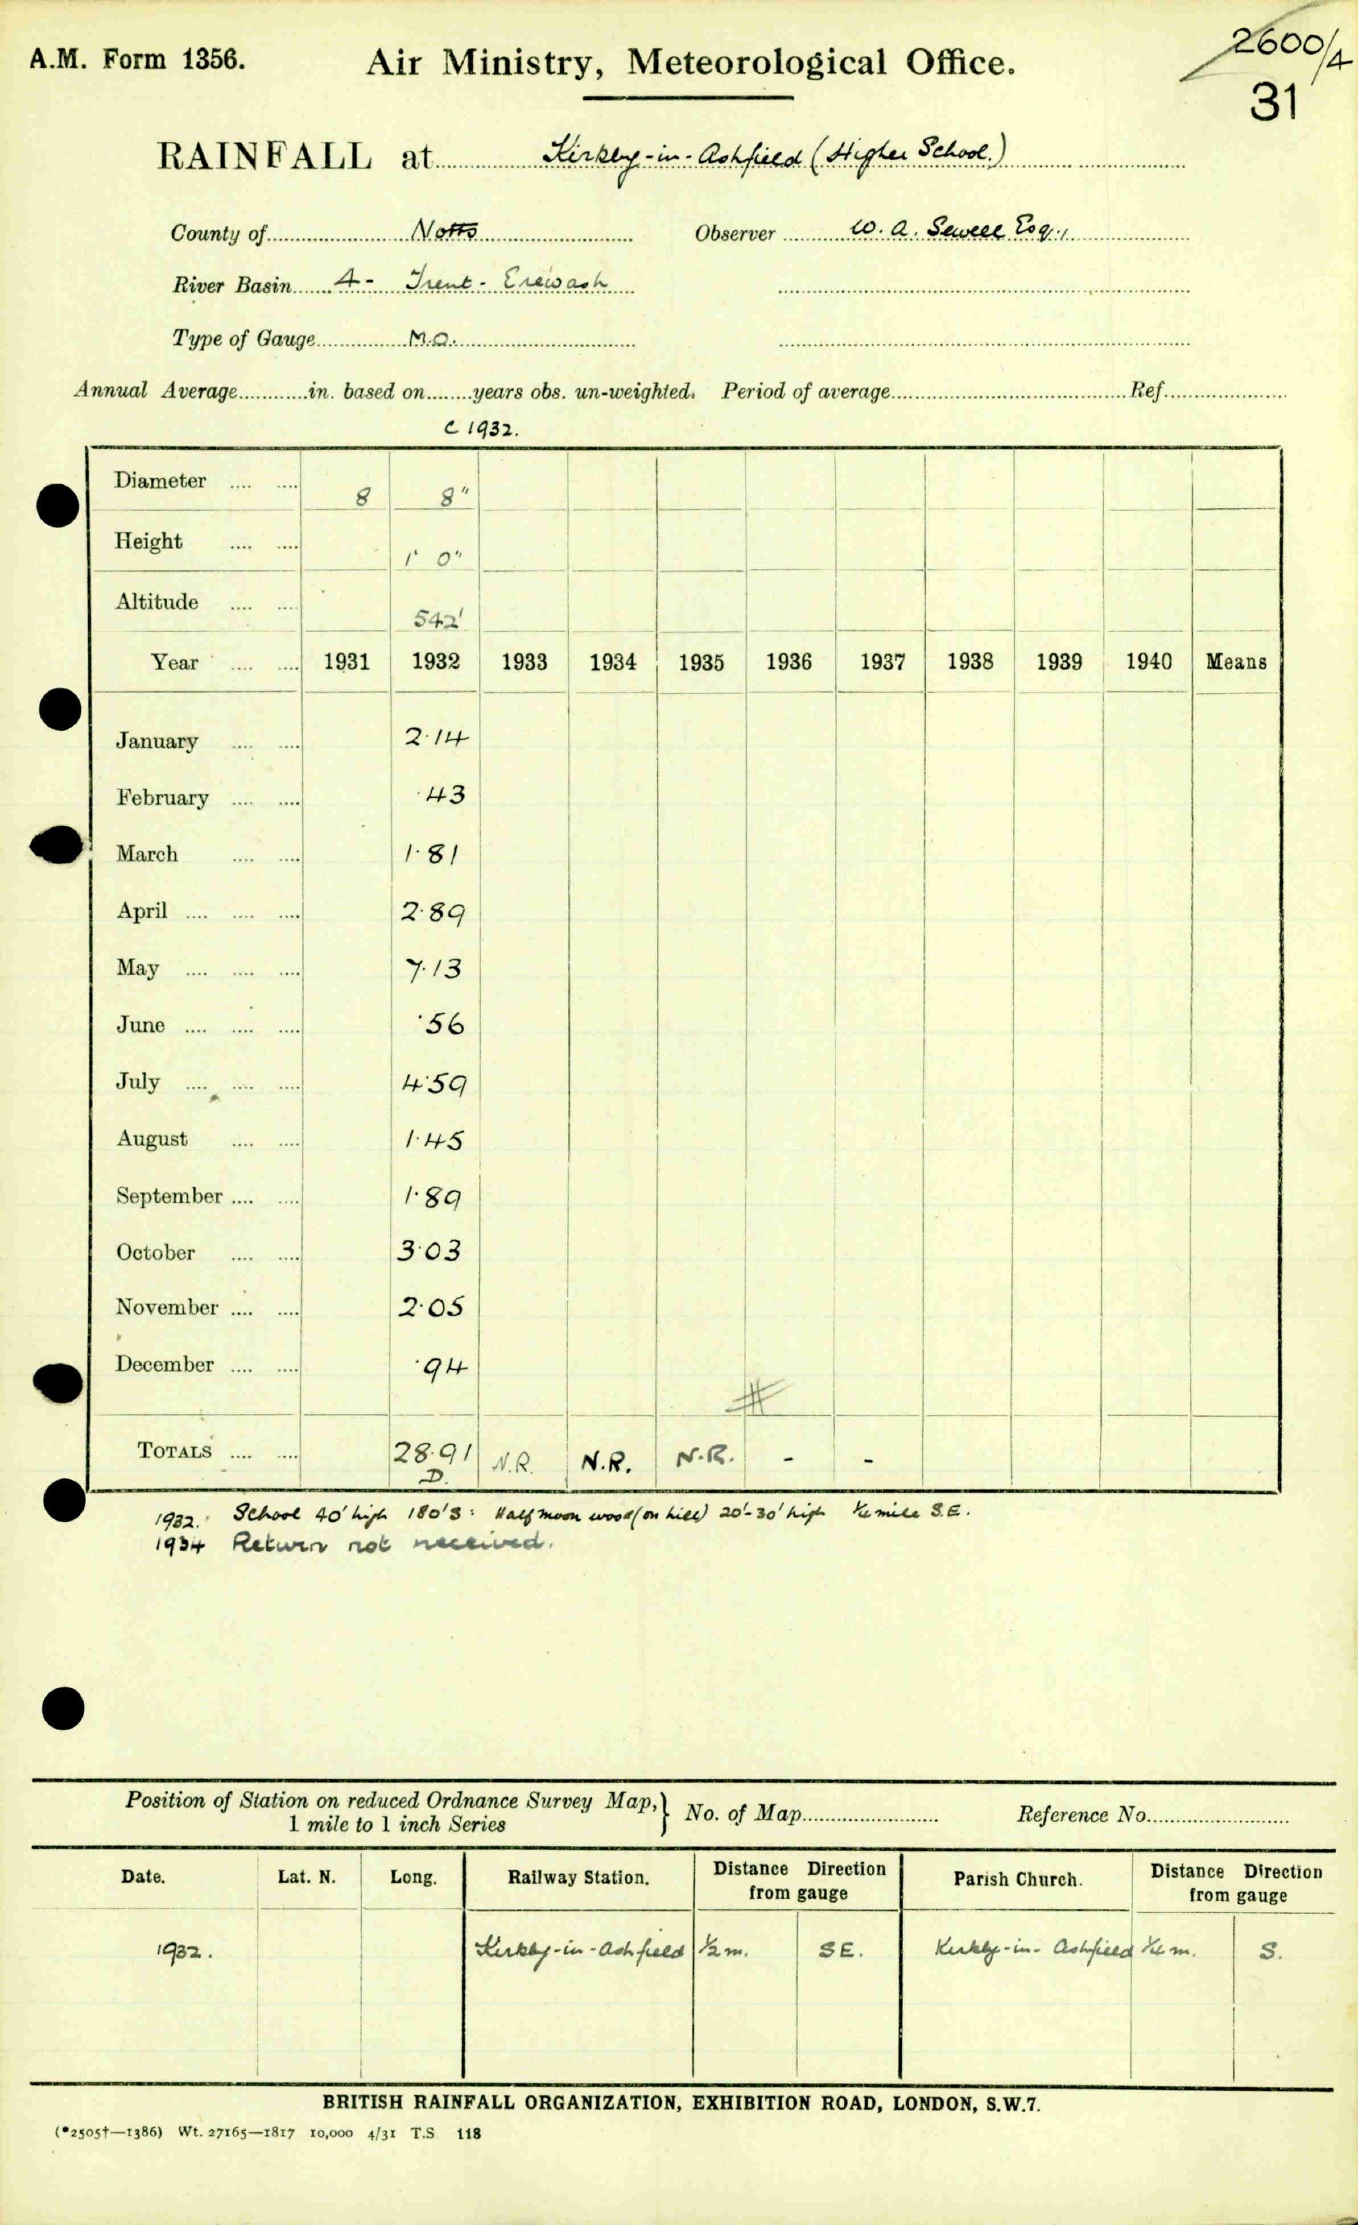 A.M. Form 1356.
Air Ministry, Meteorological Office.
2600/4
31
RAINFALL at Kirkby-in-Ashfield (Higher School.)
County of Notts Observer W. A. Sewell Esq.,
River Basin 4- Trent - Erewash
Type of Gauge M.O.
Annual Average in. based on years obs. un-weighted. Period of average Ref.
C 1932.
Diameter 8 8"
Height 1' 0"
Altitude 542'
Year 1931 1932 1933 1934 1935 1936 1937 1938 1939 1940 Means
January 2·14
February ·43
March 1·81
April 2·89
May 7·13
June ·56
July 4·59
August 1·45
September 1·89
October 3·03
November 2·05
December ·94
#
TOTALS 28·91 N.R. N.R. N.R. - -
D.
1932. School 40' high 180' S: Half moon wood (on hill) 20'-30' high ¼ mile S.E.
1934 Return not received.
Position of Station on reduced Ordnance Survey Map, } No. of Map Reference No.
1 mile to 1 inch Series
Date. Lat. N. Long. Railway Station. Distance Direction from gauge Parish Church. Distance Direction from gauge
1932. Kirkby-in-Ashfield ½ m. SE. Kirkby-in-Ashfield ¼ m. S.
BRITISH RAINFALL ORGANIZATION, EXHIBITION ROAD, LONDON, S.W.7.
(*2505†—1386) Wt. 27165—1817 10,000 4/31 T.S 118